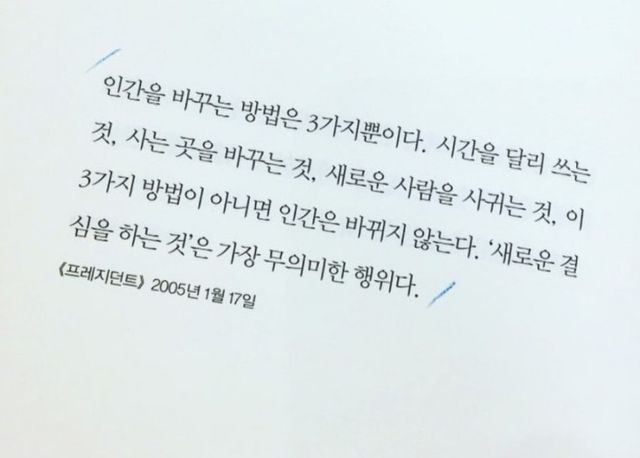 인간을 바꾸는 방법은 3가지뿐이다. 시간을 달리 쓰는
것, 사는 곳을 바꾸는 것, 새로운 사람을 사귀는 것, 이
3가지 방법이 아니면 인간은 바뀌지 않는다. ‘새로운 결
심을 하는 것’은 가장 무의미한 행위다.
《프레지던트》 2005년 1월 17일